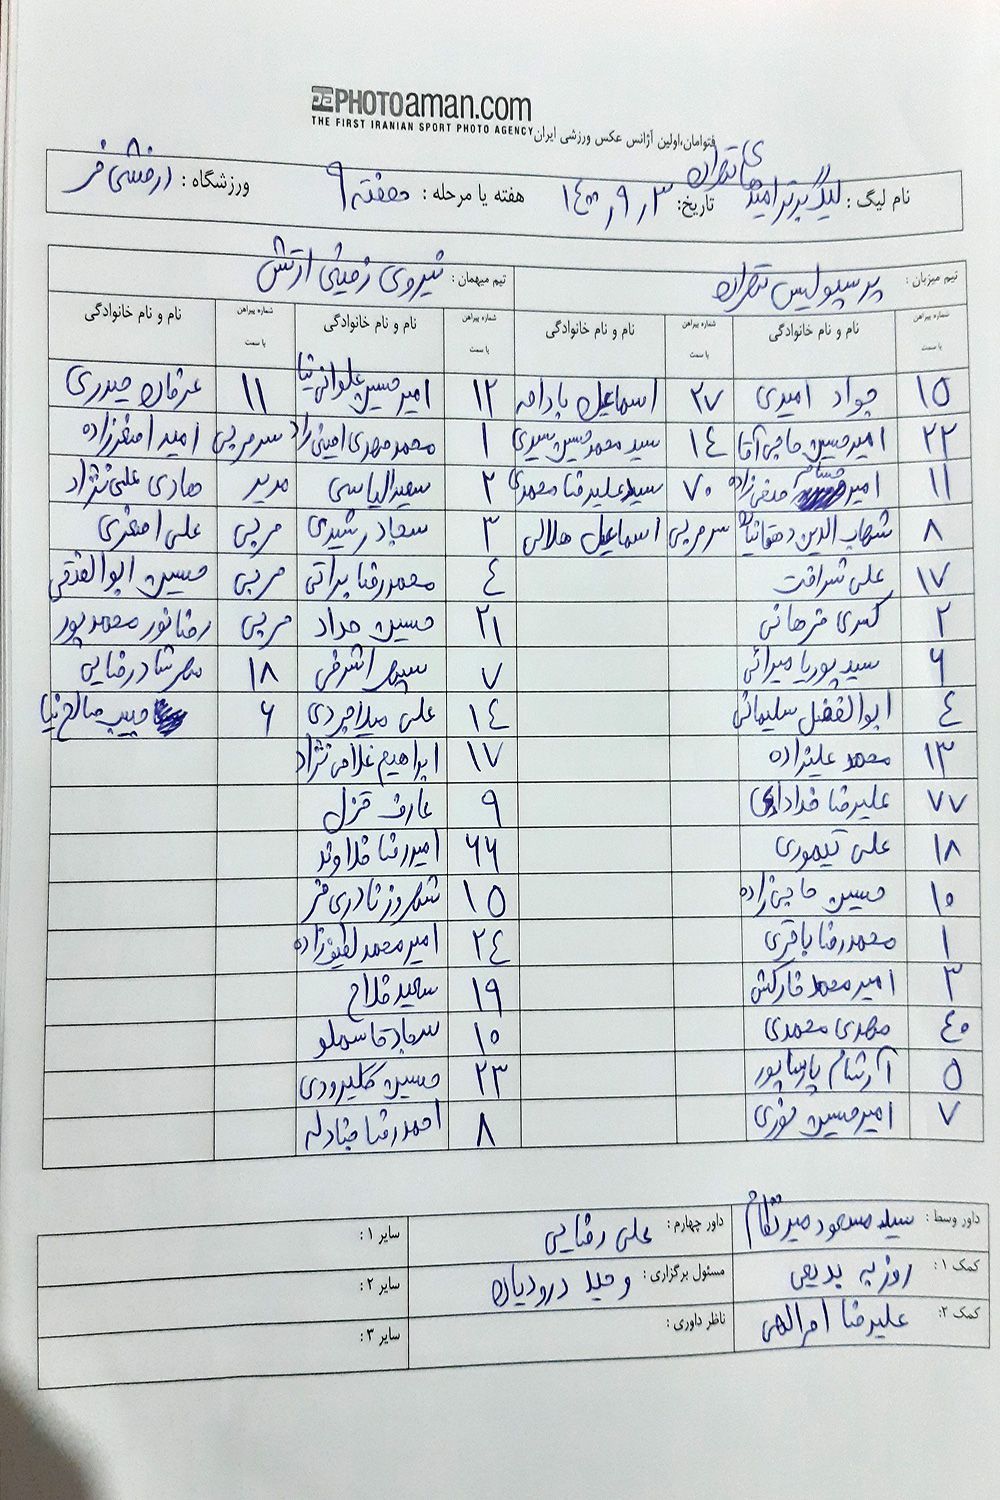 PHOTOaman.com
THE FIRST IRANIAN SPORT PHOTO AGENCY
فتوامان،اولین آژانس عکس ورزشی ایران
نام لیگ : لیگ برتر امیدهای تهران تاریخ: ۱۴۰۰٫۹٫۳ هفته یا مرحله : هفته ۹ ورزشگاه : درفشی فر
تیم میزبان : پرسپولیس تهران تیم میهمان : نیروی زمینی ارتش
شماره پیراهن یا سمت نام و نام خانوادگی شماره پیراهن یا سمت نام و نام خانوادگی شماره پیراهن یا سمت نام و نام خانوادگی شماره پیراهن یا سمت نام و نام خانوادگی
۱۵ جواد امیدی ۲۷ اسماعیل بادامه ۱۲ امیرحسین علوانی نیا ۱۱ عرفان حیدری
۲۲ امیرحسین حاجی آقا ۱۴ سید محمد حسین سیدی ۱ محمد مهدی امینی راد سرمربی امید اصغرزاده
۱۱ امیر حسام صفی زاده ۷۰ سید علیرضا محمدی ۲ سعید الیاسی مدیر هادی علی نژاد
۸ شهاب الدین دهقانیان سرمربی اسماعیل هلالی ۳ سجاد رشیدی مربی علی اصغری
۱۷ علی شرافت ۴ محمدرضا براتی مربی حسین ابوالفتحی
۲ کسری فرهانی ۲۱ حسین حداد مربی رضا نور محمدپور
۶ سید پوریا میرائی ۷ سپهر اشرفی ۱۸ مهرشاد رضایی
۴ ابوالفضل سلیمانی ۱۴ علی میلاجردی ۶ حبیب صالح نیا
۱۳ محمد علیزاده ۱۷ ابراهیم غلامی نژاد
۷۷ علیرضا خدادادی ۹ عارف قزل
۱۸ علی تیموری ۶۶ امیررضا فلاوند
۱۰ حسین حاجی زاده ۱۵ شهروز نادری فر
۱ محمدرضا باقری ۲۴ امیرمحمد لطیف زاده
۳ امیرمحمد خارکش ۱۹ سعید فلاح
۴۰ مهدی محمدی ۱۰ سجاد قاسملو
۵ آرشام پارساپور ۲۳ حسین کلیرودی
۷ امیرحسین نوری ۸ احمدرضا جنادله
داور وسط : سید مسعود میرنظام داور چهارم : علی رضایی سایر ۱ :
کمک ۱ : روزبه بدیعی مسئول برگزاری : وحید درودیان سایر ۲ :
کمک ۲: علیرضا امرالهی ناظر داوری : سایر ۳ :